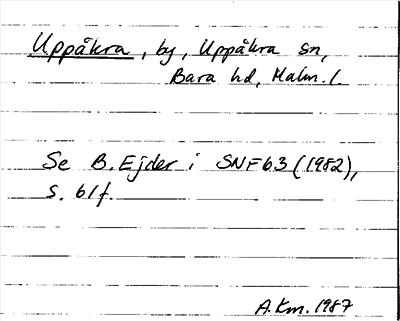 Uppåkra, by, Uppåkra sn,
Bara hd, Malm. l.
Se B. Ejder i SNF 63 (1982),
s. 61f.
A.Km. 1987